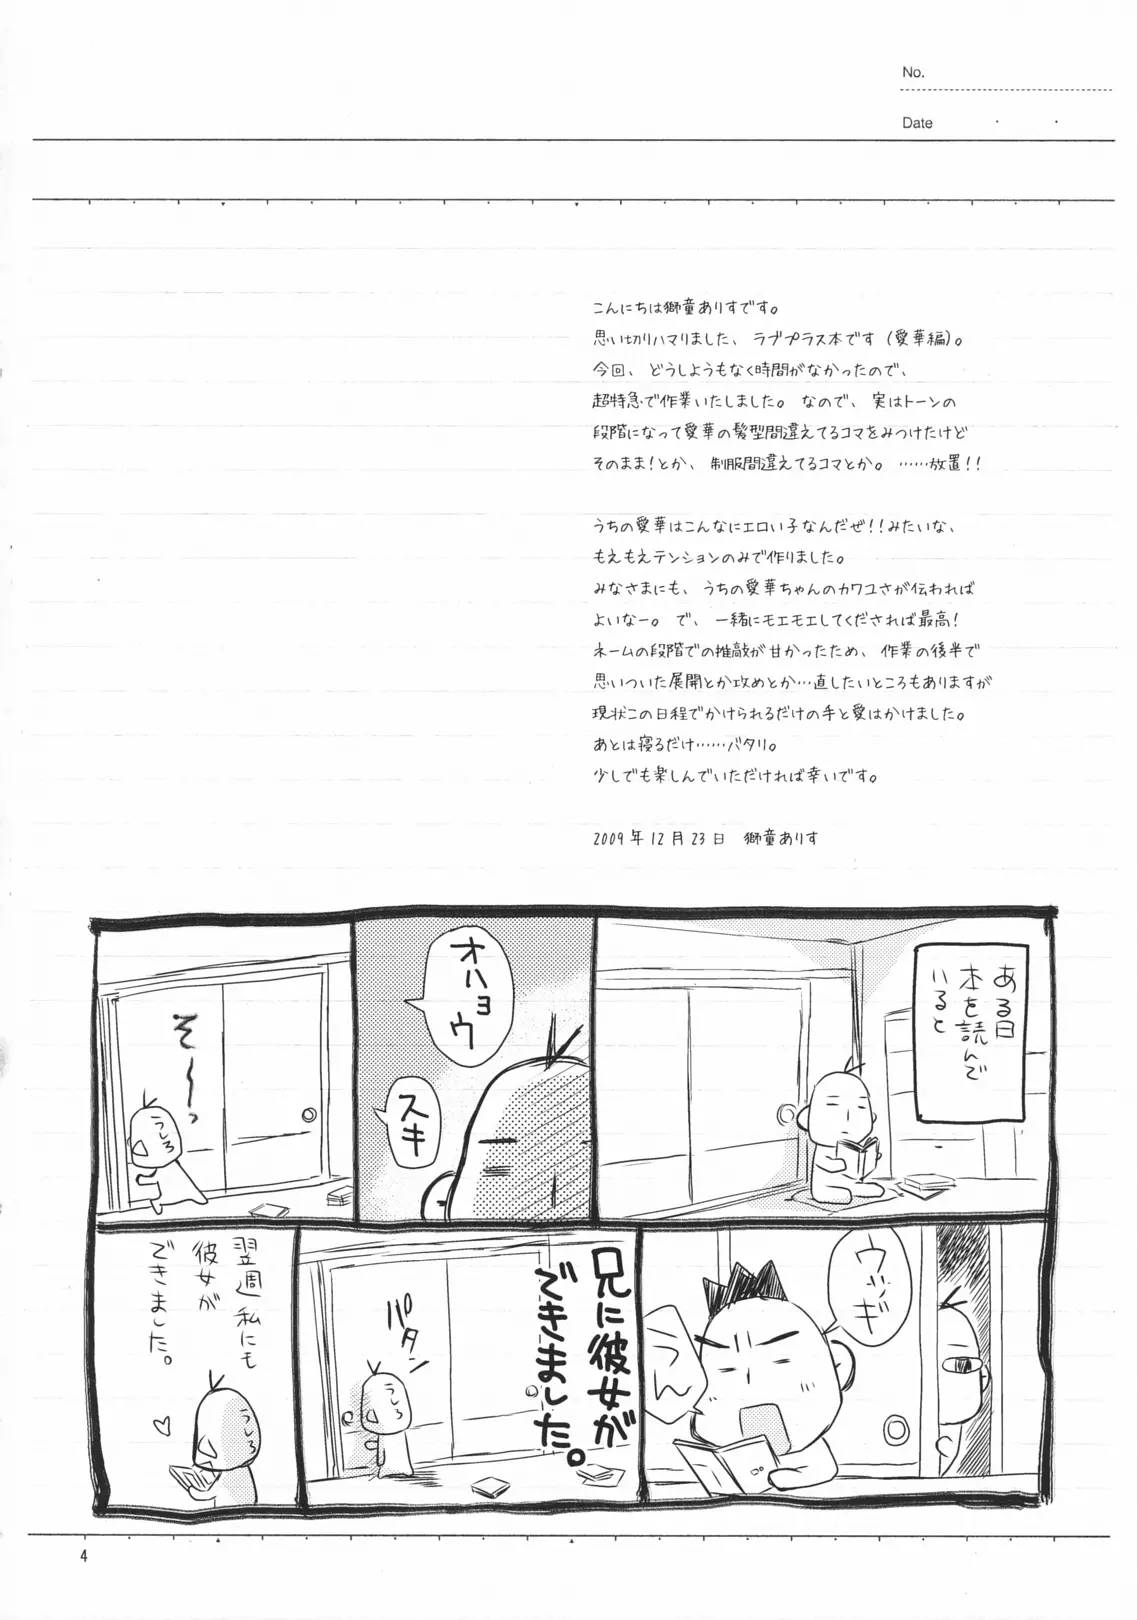 No.
Date
こんにちは獅童ありすです。
思い切りハマりました、ラブプラス本です(愛華編)。
今回、どうしようもなく時間がなかったので、
超特急で作業いたしました。なので、実はトーンの
段階になって愛華の髪型間違えてるコマをみつけたけど
そのまま!とか、制服間違えてるコマとか。……放置!!
うちの愛華はこんなにエロい子なんだぜ!!みたいな、
もえもえテンションのみで作りました。
みなさまにも、うちの愛華ちゃんのカワユさが伝われば
よいなー。で、一緒にモエモエしてくだされば最高!
ネームの段階での推敲が甘かったため、作業の後半で
思いついた展開とか攻めとか…直したいところもありますが
現状この日程でかけられるだけの手と愛はかけました。
あとは寝るだけ……バタリ。
少しでも楽しんでいただければ幸いです。
2009年12月23日 獅童ありす
ある日
本を読んで
いると
オハョウ
スキ
そ〜っ
うしろ
ウッギ
うん
兄に彼女が
できました。
パタン
うしろ
翌週私にも
彼女が
できました。
うしろ
4